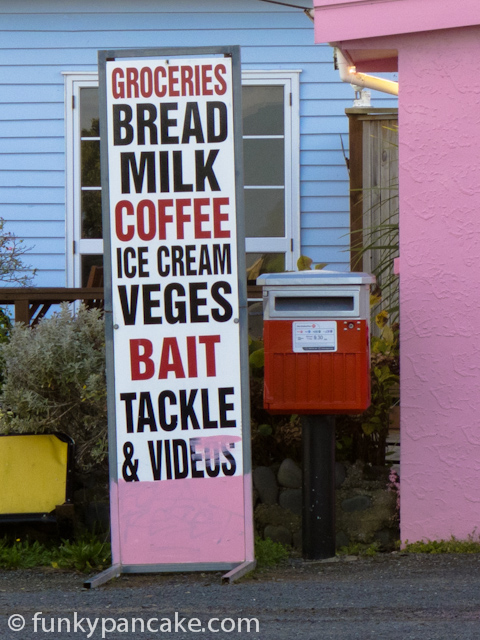 GROCERIES
BREAD
MILK
COFFEE
ICE CREAM
VEGES
BAIT
TACKLE
& VIDEOS
© funkypancake.com